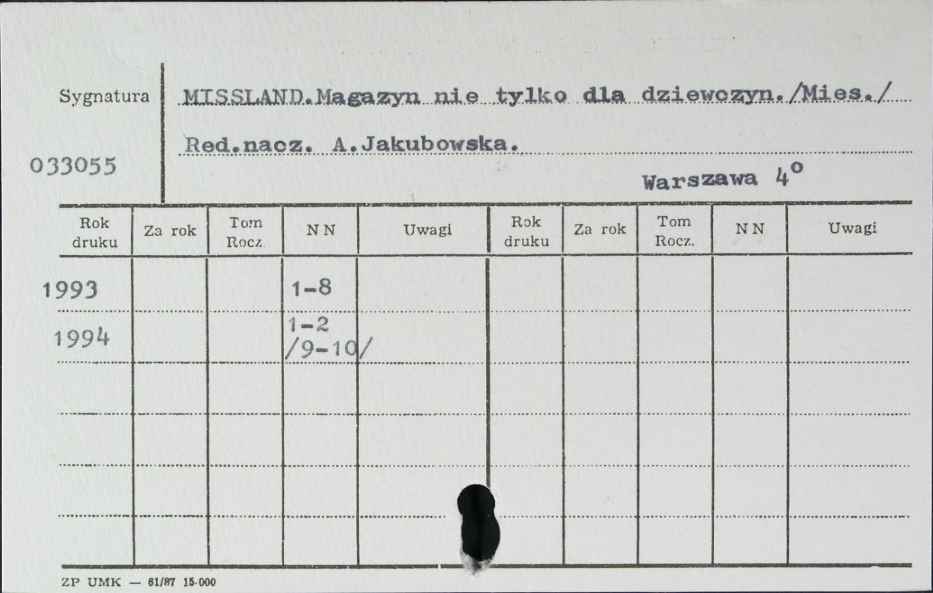 Sygnatura MISSLAND.Magazyn nie tylko dla dziewczyn./Mies./
Red.nacz. A.Jakubowska.
033055
Warszawa 4°
Rok druku Za rok Tom Rocz. NN Uwagi Rok druku Za rok Tom Rocz. NN Uwagi
1993 1-8
1994 1-2
/9-10/
ZP UMK — 61/87 15-000